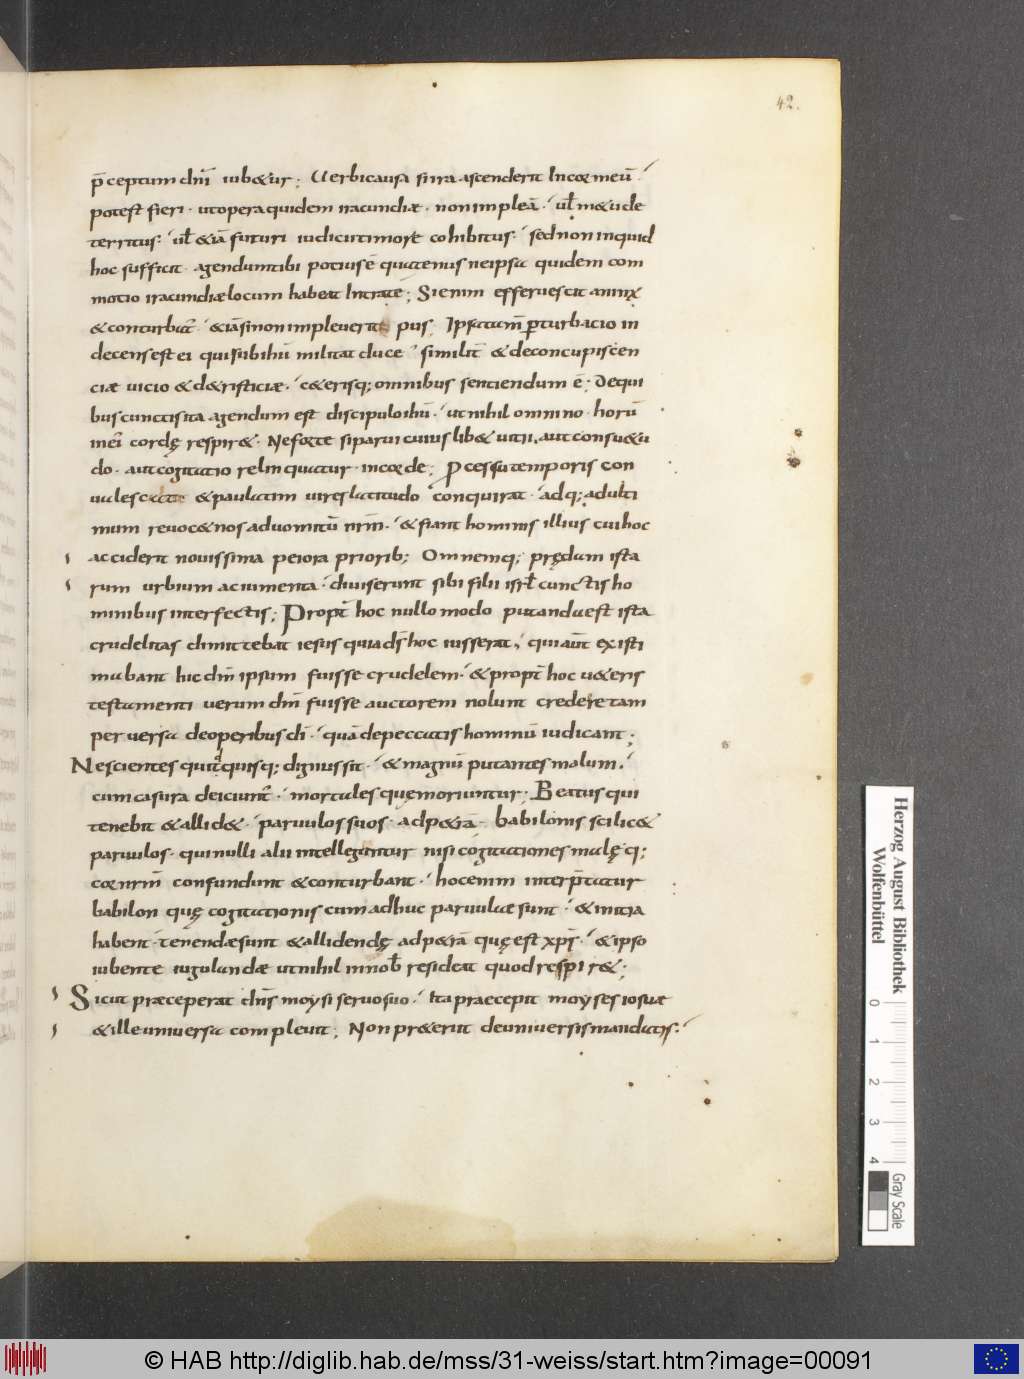 42.
p̄ceptum dn̄i iub&ur; Uerbi causa si ira ascenderit In cor meū
potest fieri · ut opera quidem iracundiæ · non impleā · ul̄ m&u de
territus · ul̄ &iā futuri iudicii timore cohibitus · sed non inquid
hoc sufficit · agendum tibi potius ē quatenus ne ipsa quidem com
motio iracundiæ locum habeat Intra te; Si enim efferuescit anima
& conturbat̄ · &iā si non impleuerit opus; Ipsa tam̄ perturbacio in
decens est ei qui sub ihū militat duce · similit̄ & de concupiscen
ciæ uicio & d&risticiæ · c&erisq; omnibus sentiendum ē; De qui
bus cunctis ita agendum est discipulo ihū · ut nihil omnino · horū
in ei cordę respir& · Ne forte si parui cuiuslib& uitii · aut consu&u
do · aut cogitatio relinquatur · in corde; Processu temporis con
ualescat & paulatim uires latitudo conquirat · adq; ad ulti
mum reuoc& nos ad uomitū nr̄m · & fiant hominis illius cui hoc
acciderit nouissima peiora priorib; Omnemq; prędam ista
rum urbium ac iumenta · diuiserunt sibi filii isrl̄ cunctis ho
minibus interfectis; Propt̄ hoc nullo modo putanda est ista
crudelitas dimittebat iesus quia ds̄ hoc iusserat, qui aūt existi
mabant hic dm̄ ipsum fuisse crudelem · & propt̄ hoc u&eris
testamenti uerum dm̄ fuisse auctorem nolunt credere tam
peruersa de operibus dī · quā de peccatis hominū iudicant;
Nescientes quid quisq; dignus sit · & magnū putantes malum ·
cum casura deiciunt̄ · mortales quę moriuntur · Beatus qui
tenebit & allid& · paruulos suos · ad p&rā · babilonis scilic&
paruulos · qui nulli alii intelleguntur nisi cogitationes malę q;
cor nrm̄ confundunt & conturbant · hoc enim interp̄tatur
babilon quę cogitationis cum adhuc paruulae sunt · & initia
habent · tenendæ sunt & allidendę ad p&rā quę est xpī · & ipso
iubente iugulandæ ut nihil in nob̄ resideat quod respir&;
Sicut præceperat dn̄s moysi seruo suo · Ita praecepit moyses iosuæ
& ille uniuersa compleuit; Non pr&eriit de uniuersis mandatis ·
Herzog August Bibliothek
Wolfenbüttel
0 1 2 3 4
Gray Scale
© HAB http://diglib.hab.de/mss/31-weiss/start.htm?image=00091